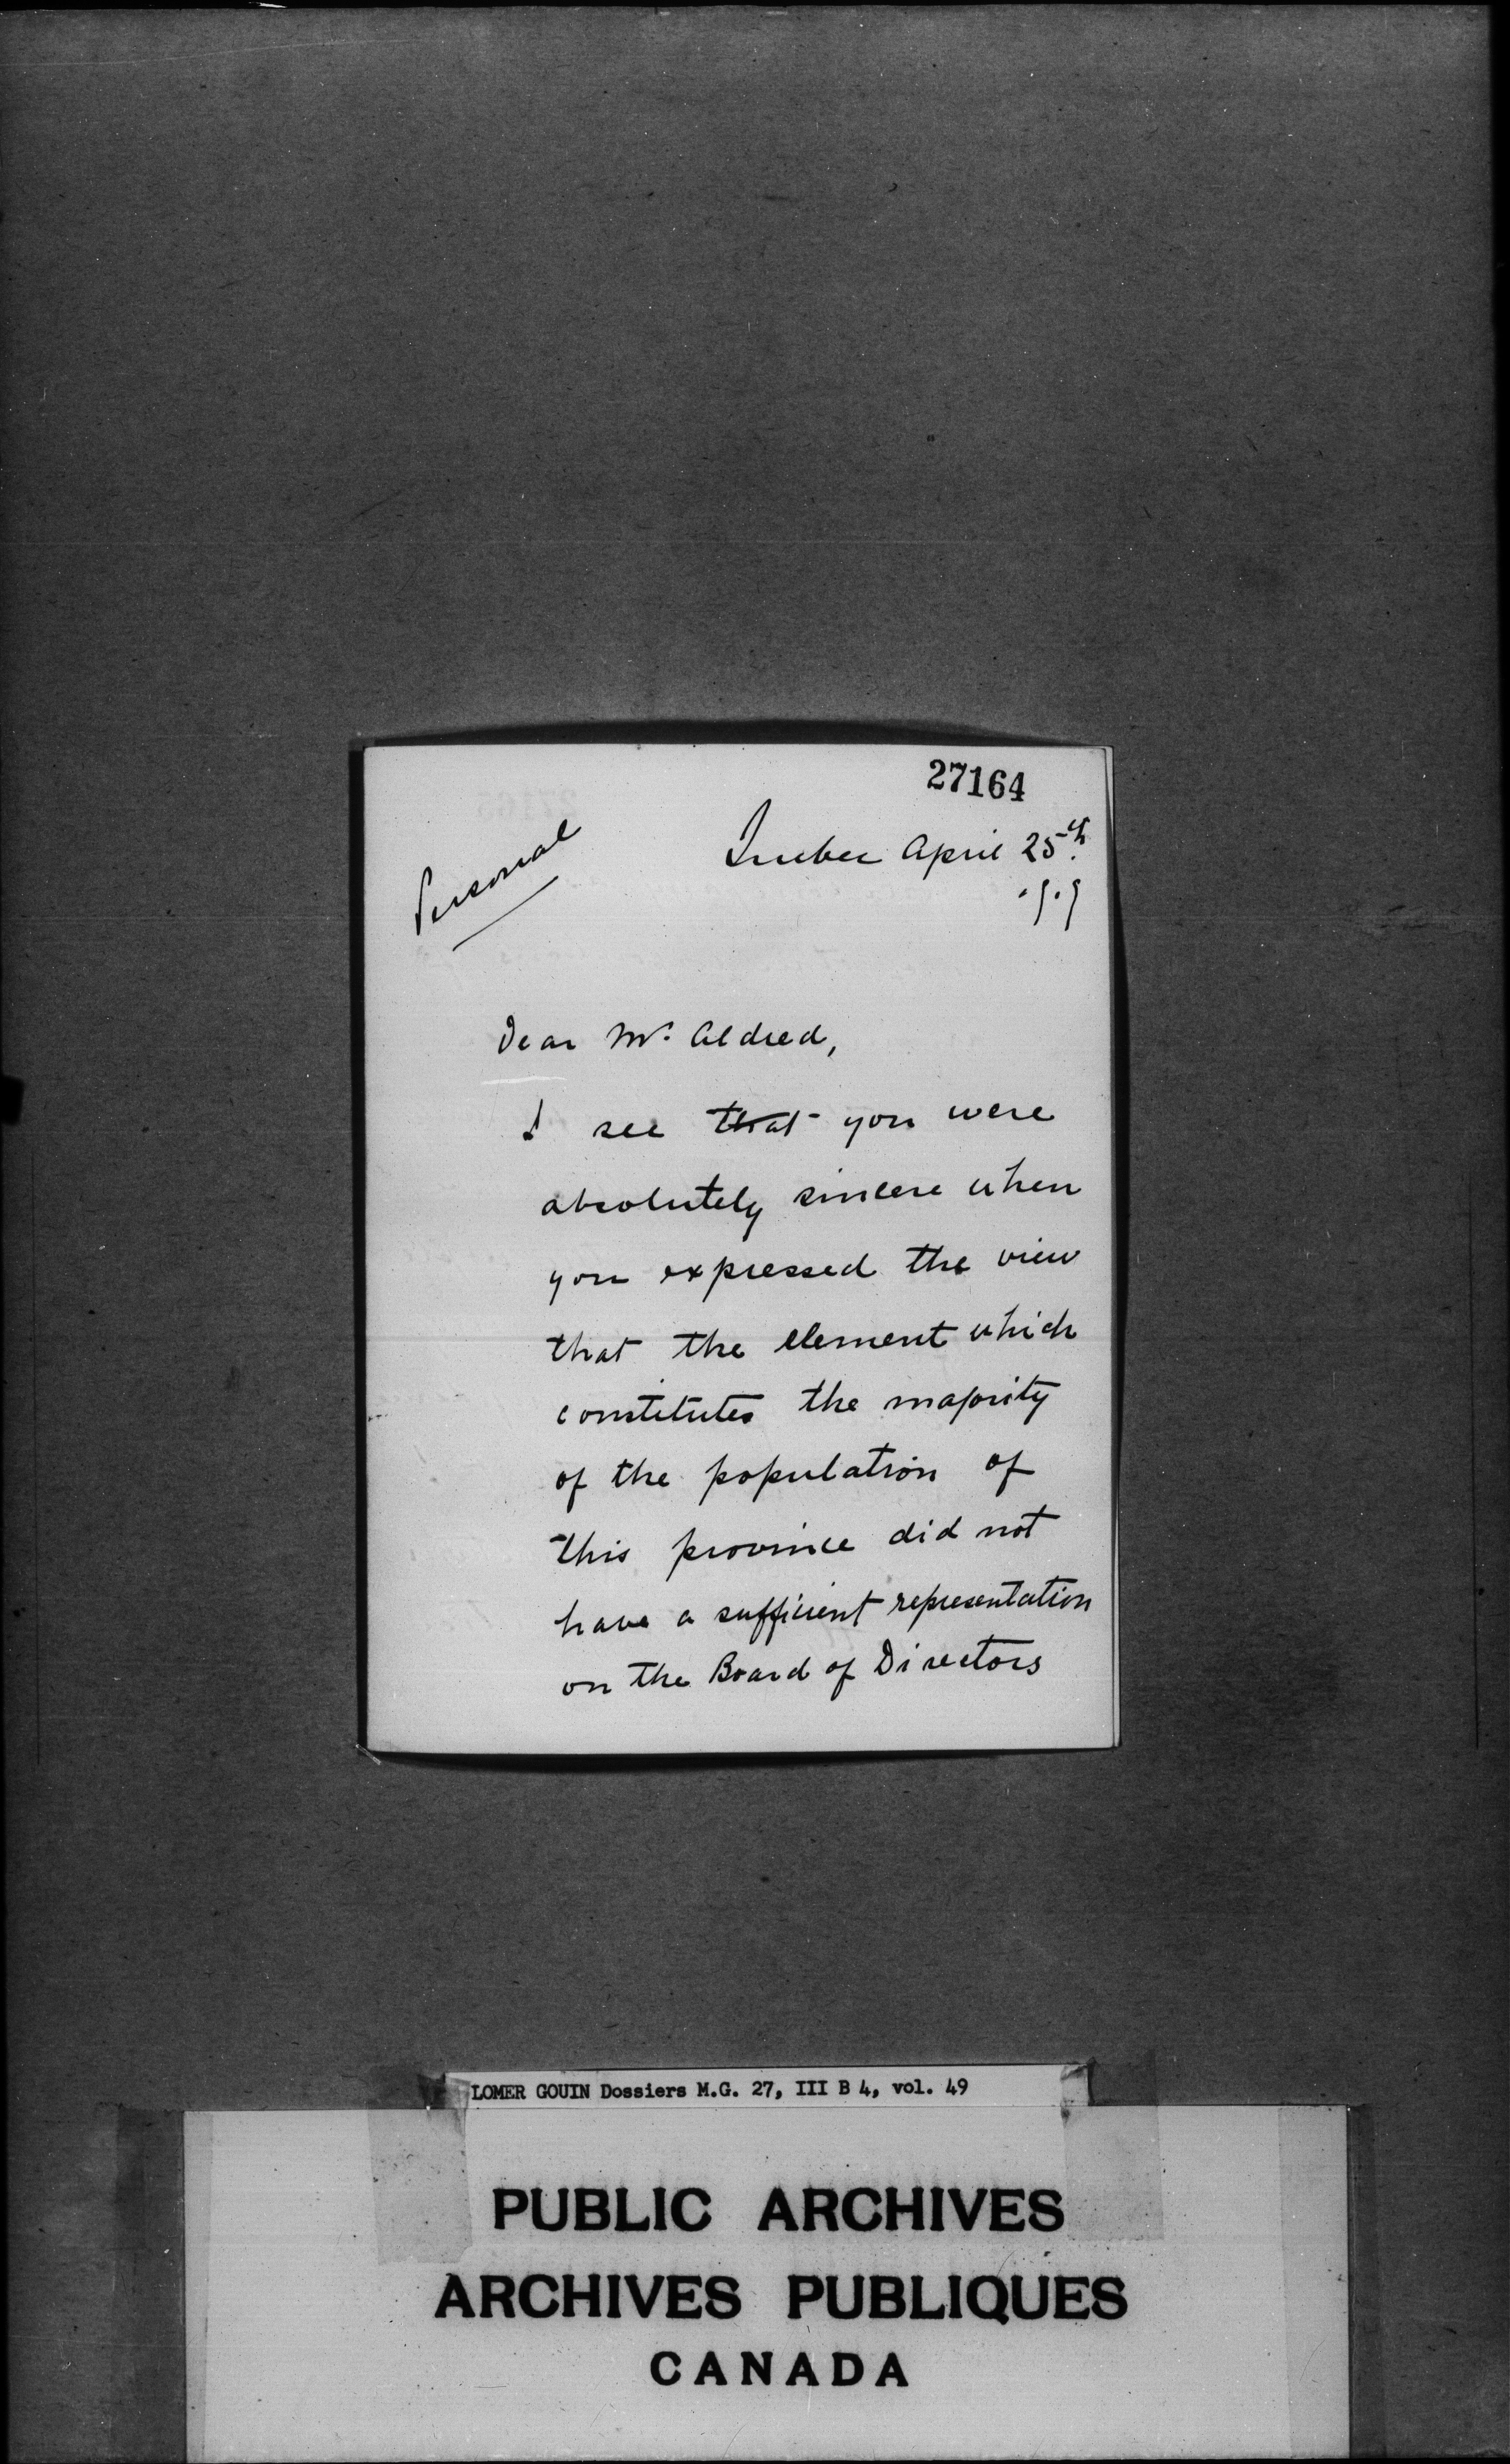 27164
Personal
Quebec April 25th.
Dear Mr. Aldred,
I see that you were
absolutely sincere when
you expressed the view
that the element which
constitutes the majority
of the population of
this province did not
have a sufficient representation
on the Board of Directors
LOMER GOUIN Dossiers M.G. 27, III B 4, vol. 49
PUBLIC ARCHIVES
ARCHIVES PUBLIQUES
CANADA